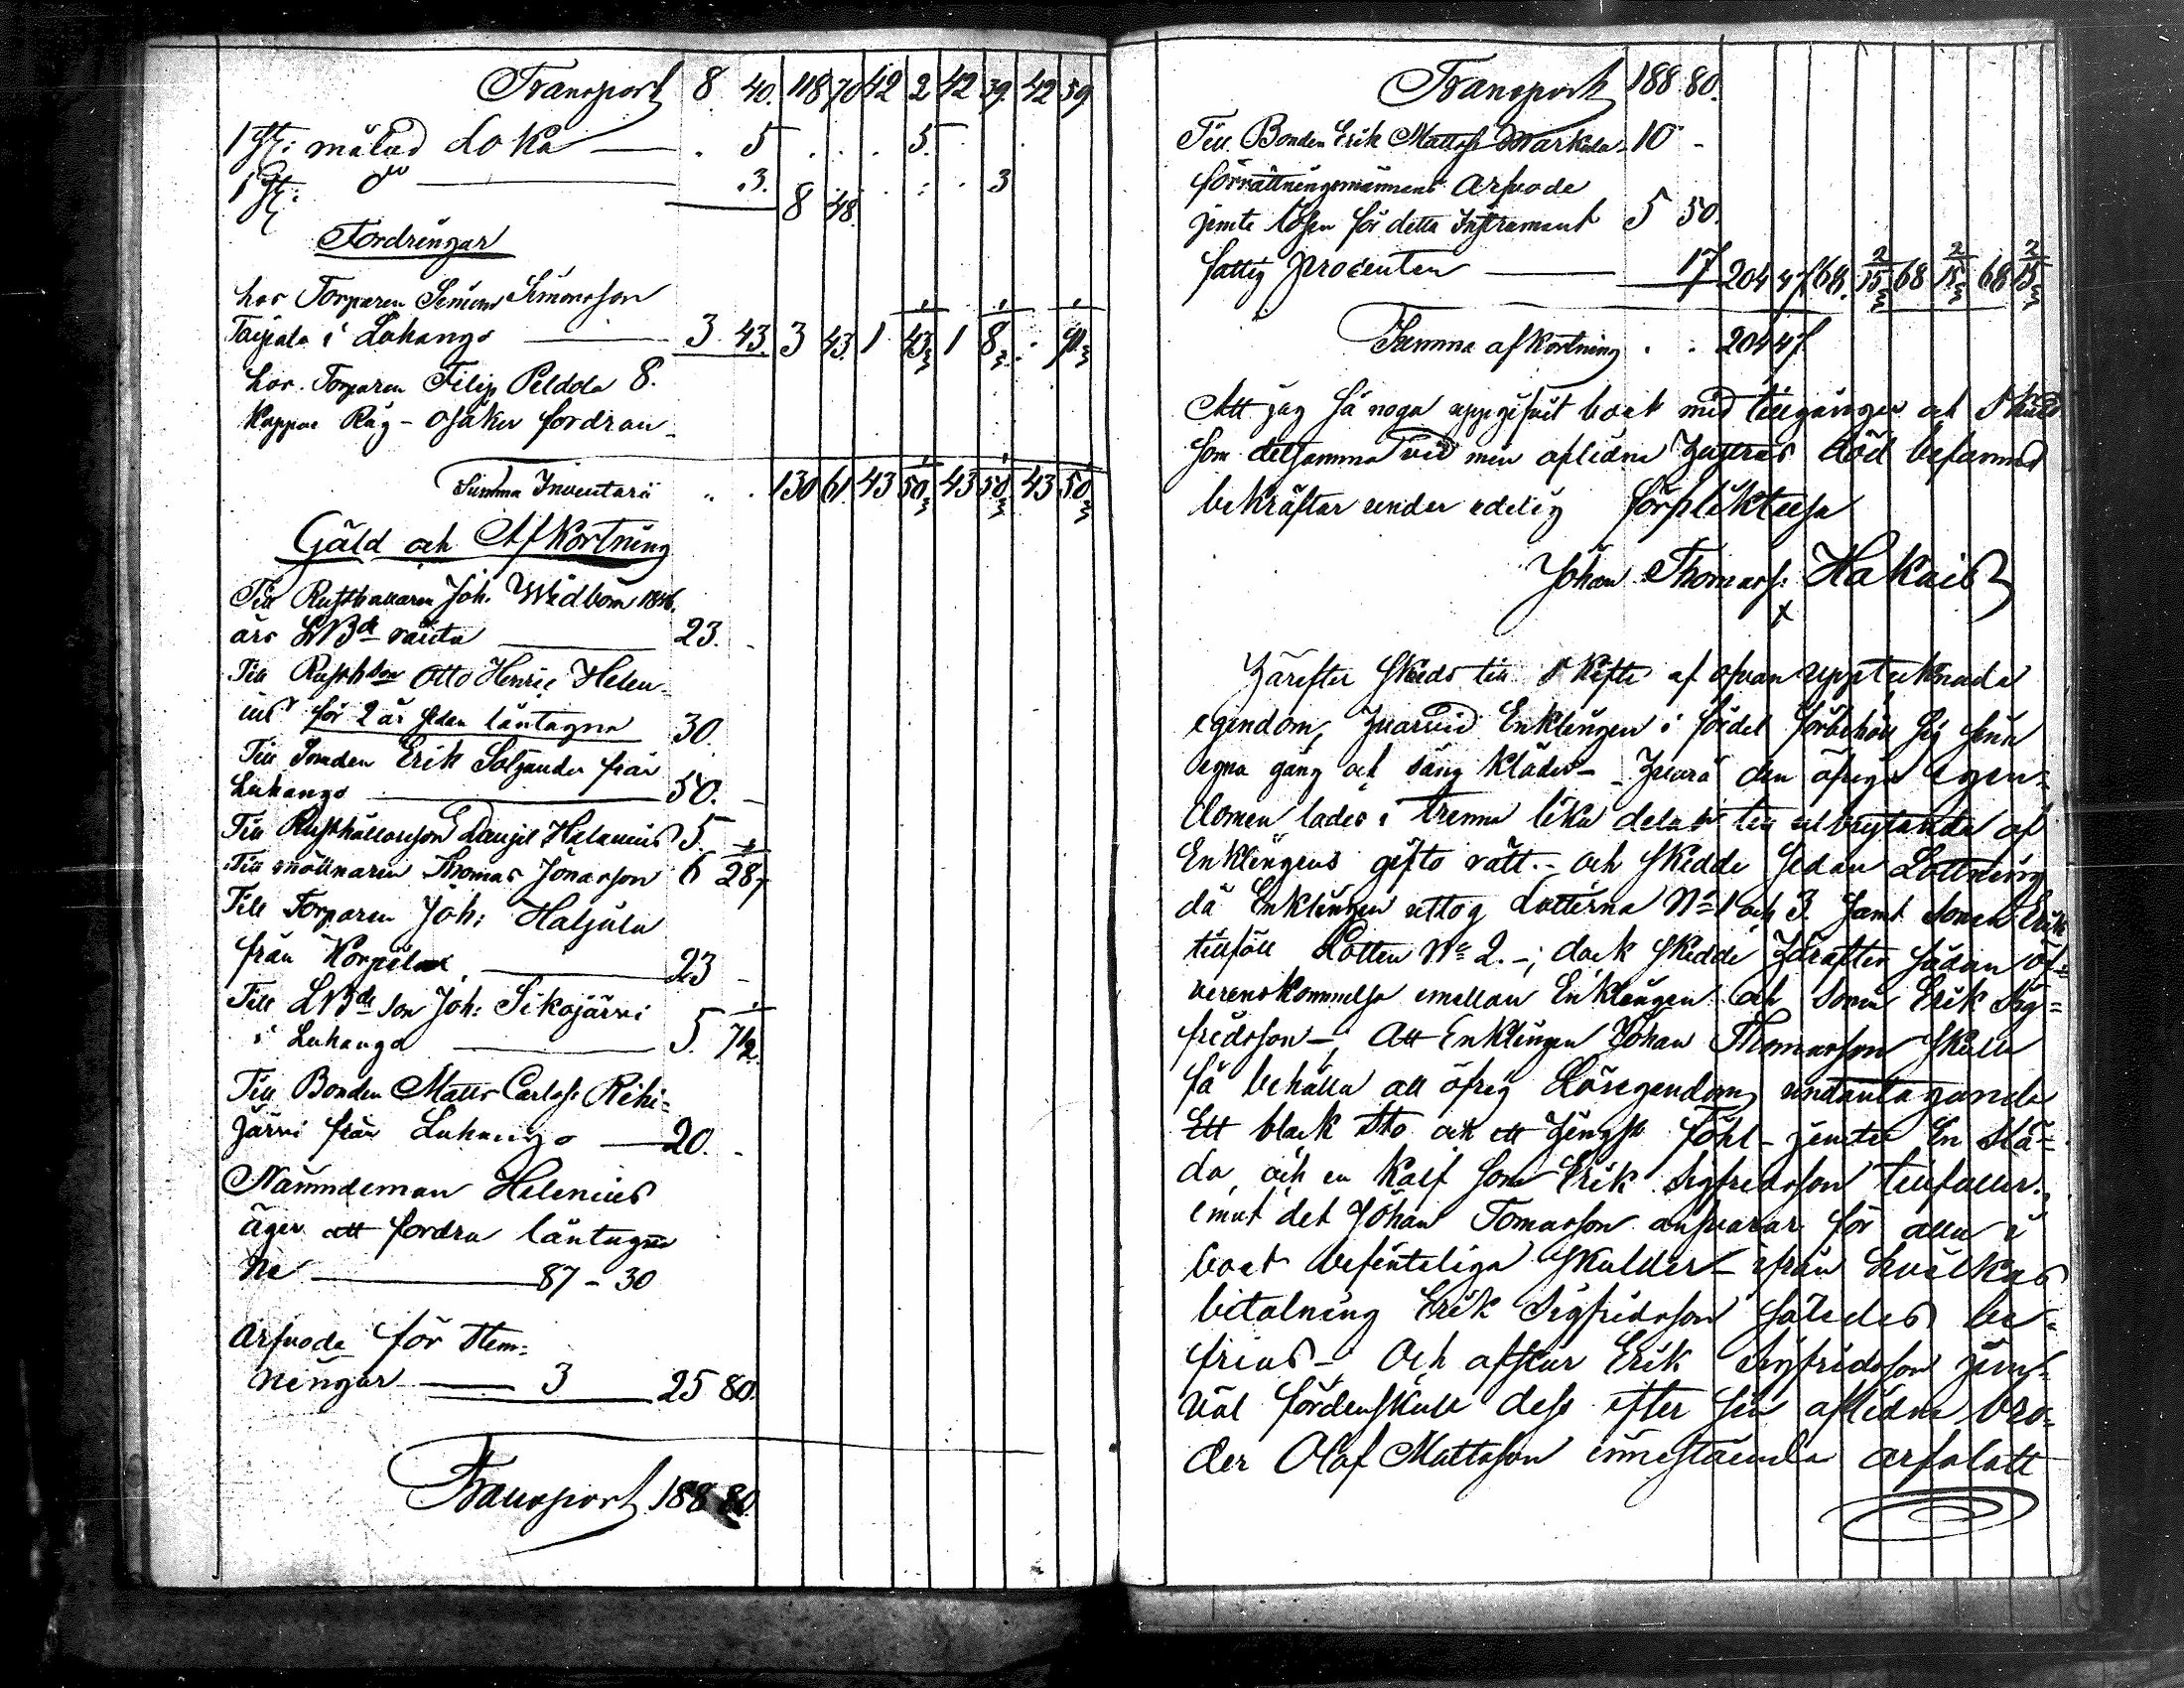 Transport 8 40. 118 70 42 2 42 39. 42 59
1 st: målad Loka — . 5 . . . 5. .
1 st: do — . 3. 8 48. . . . . 3
Fordringar
hos Torparen Simon Simonsson
i Luhango — 3 43. 3 43. 1 43 1 8 . 91
hos Torparen Filip Peldola 8.
Kappar Råg - osäker fordran -
Summa Inventarii . . 130 61. 43 50 43 50 43 50
Gäld och Afkortning
Till Rusthållaren Joh. Widbom 1856.
års LBde ränta — 23. -
Till Rusthson Otto Henric Helen-
ius för 2 år sedan läntagna 30.
Till Erik från
Luhango — 50. -
Till Rusthållarsson Daniel Helenius 5. -
Till möllnaren Thomas Jönasson 6 28
Till Torparen Joh: Haljula
från — 23 -
Till LBde son Joh: Sikojärvi
i Luhango — 5. 71/2.
Till Bonden Matts Carlss. Rihi=
järvi från Luhango — 20. -
Nämndeman Helenius
äger att fordra läntagne
ne — 87 - 30
Arfvode för stem=
ningar — 3 — 25 80.
Transport 188 80
Transport 188 80.
Till Bonden Erik Mattss. Markula - 10 -
förrättningsmännens Arfvode
jemte lösen för detta Instrument 5 50.
fattig procenten — 17 204 47 68. 2/15 68 2/15 68 2/15
Summa afkortning . . 204 47
Att jag så noga uppgifvit boet med tillgångar och skuld
som detsamma vid min aflidna hustrus död befanns
bekräftar under edelig förpliktelse
Johan Thomass: Hakais
x
Härefter skreds till skifte af ofvan upptecknade
egendom, hvarvid Enklingen i fördel förbehöll sig sina
egna gång och säng kläder - hvarå den öfriga egen=
domen lades i trenne lika delar till utbrytande af
Enklingens gifto rätt. - och skedde sedan Lottning
då Enklingen uttog Lotterna No 1 och 3. samt sonen Erik
tillföll Lotten No 2. -; dock skedde härefter sådan öf=
verenskommelse emellan Enklingen och sonen Erik Sig=
fridsson -, Att Enklingen Johan Thomasson skulle
få behålla all öfrig Lösegendom, undantagande
Ett black sto och ett hingst föhl - jemte En slä=
da, och en kalf som Erik Sigfridsson tillfaller.,
emot det Johan Tomasson ansvarar för alla i
boet befinteliga skulder - ifrån hvilkas
betalning Erik Sigfridsson således be=
frias - Och afstår Erik Sigfridsson jem=
väl fördenskull dess efter sin aflidne bro=
der Olof Mattsson innestående arfslott